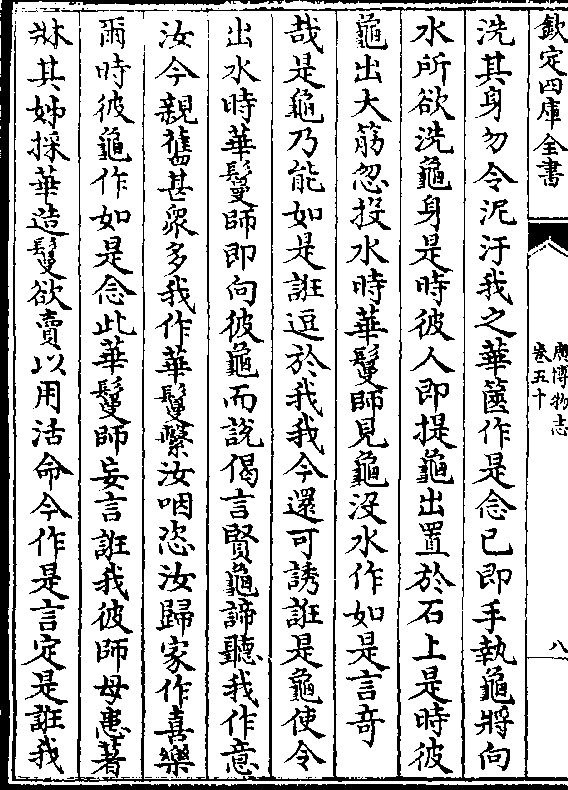 欽定四庫全書
廣博物志
卷五十
八
洗其身勿令泥汙我之華篋作是念已即手執龜將向
水所欲洗龜身是時彼人即提龜出置於石上是時彼
龜出大筋忽投水時華鬘師見龜没水作如是言奇
哉是龜乃能如是誑逗於我我今還可誘誑是龜使令
出水時華鬘師即向彼龜而說偈言賢龜諦聽我作意
汝今親舊甚衆多我作華鬘繫汝咽恣汝歸家作喜樂
爾時彼龜作如是念此華鬘師妄言誑我彼師母患著
牀其姊採華造鬘欲賣以用活命今作是言定是誑我